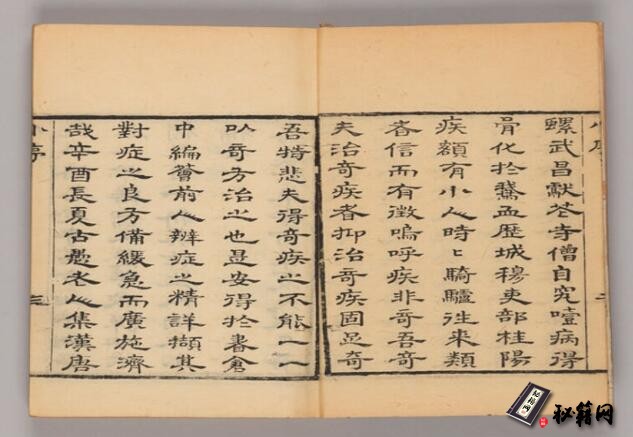 小序 二
螺武昌獻花寺僧自究噎病得
骨化於鵞血歷城穆吏部桂陽
疾額有小人時〻騎驢往來類
皆信而有徵嗚呼疾非奇吾奇
夫治奇疾者抑治奇疾固亟奇
吾特悲夫得奇疾之不能一一
以奇方治之也是安得於書倉
中編薈前人辨症之精詳擷其
對症之良方備緩急而廣施濟
哉辛酉長夏古老人集漢唐
小序 三
秘籍网